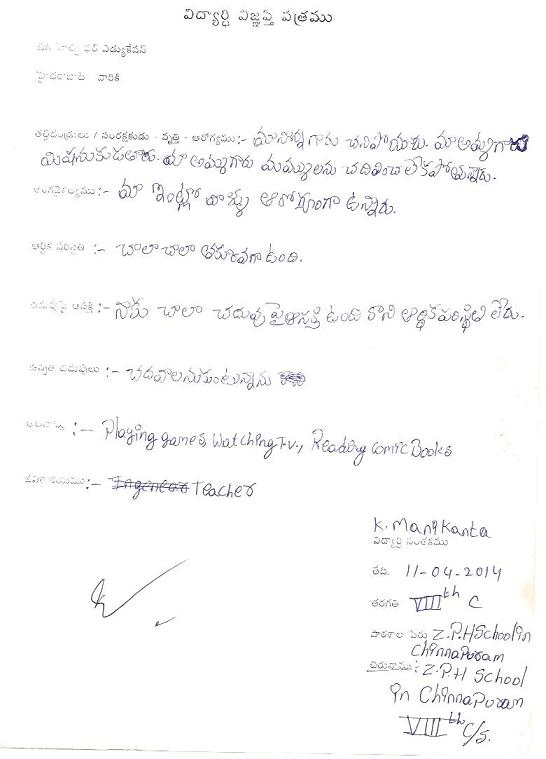 విద్యార్ధి విజ్ఞప్తి పత్రము
హెల్ప్ ఫర్ ఎడ్యుకేషన్
హైదరాబాద్ వారికి
తల్లిదండ్రులు / సంరక్షకుడు - వృత్తి - ఆరోగ్యము:- మా నాన్న గారు చనిపోయారు. మా అమ్మగారు
మిషనుకుడతారు. మా అమ్మగారు మమ్ములను చదివించ లేకపోతున్నారు.
అంగవైకల్యము :- మా ఇంట్లో వాళ్ళు ఆరోగ్యంగా ఉన్నారు.
ఆర్ధిక పరిస్థితి :- చాలా చాలా తక్కువగా ఉంది.
చదువుపై ఆసక్తి :- నాకు చాలా చదువు పైఆసక్తి ఉంది కాని ఆర్ధికపరిస్థితి లేదు.
ఉన్నత చదువులు :- చదవాలనుకుంటున్నాను
అలవాట్లు :- Playing games, Watching T.v., Reading Comic Books
:- Ingenear Teacher
K. Manikanta
విద్యార్ధి సంతకము
తేది. 11-04-2014
తరగతి VIIIth C
పాఠశాల పేరు Z.P.H School in
Chinnapuram
చిరునామా: Z.P.H School
in Chinnapuram
VIIIth C/s.